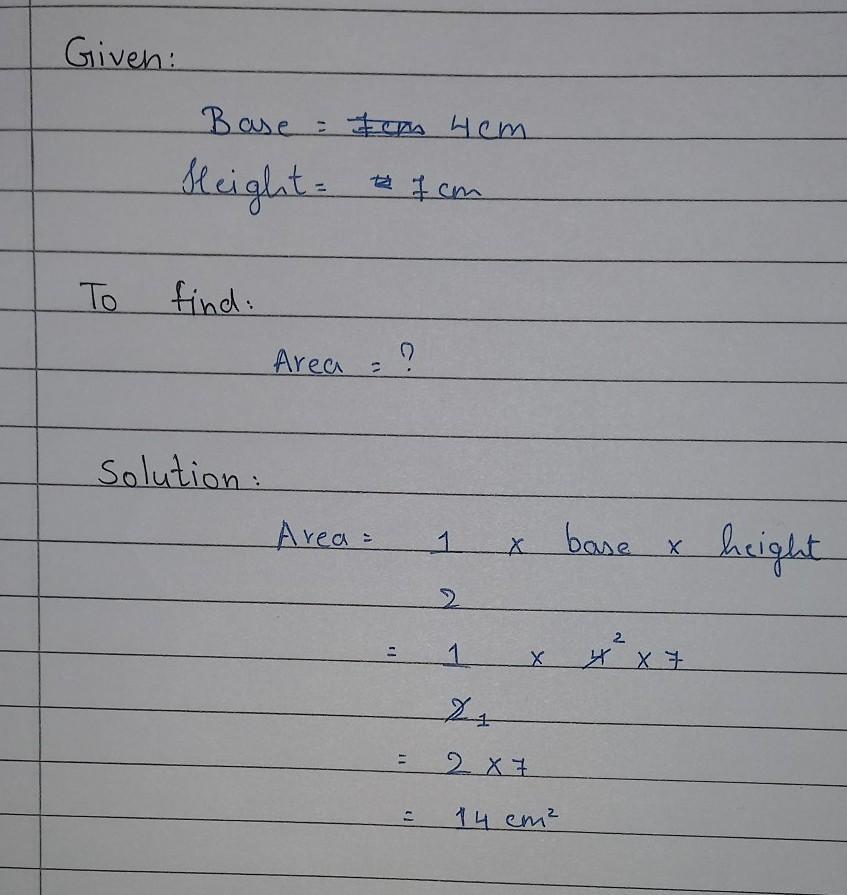 Given:
Base = 7cm 4cm
Height = 7 cm
To find:
Area = ?
Solution:
Area = 1 x base x height
2
= 1 x 4 2 x 7
2 1
= 2 x 7
= 14 cm²